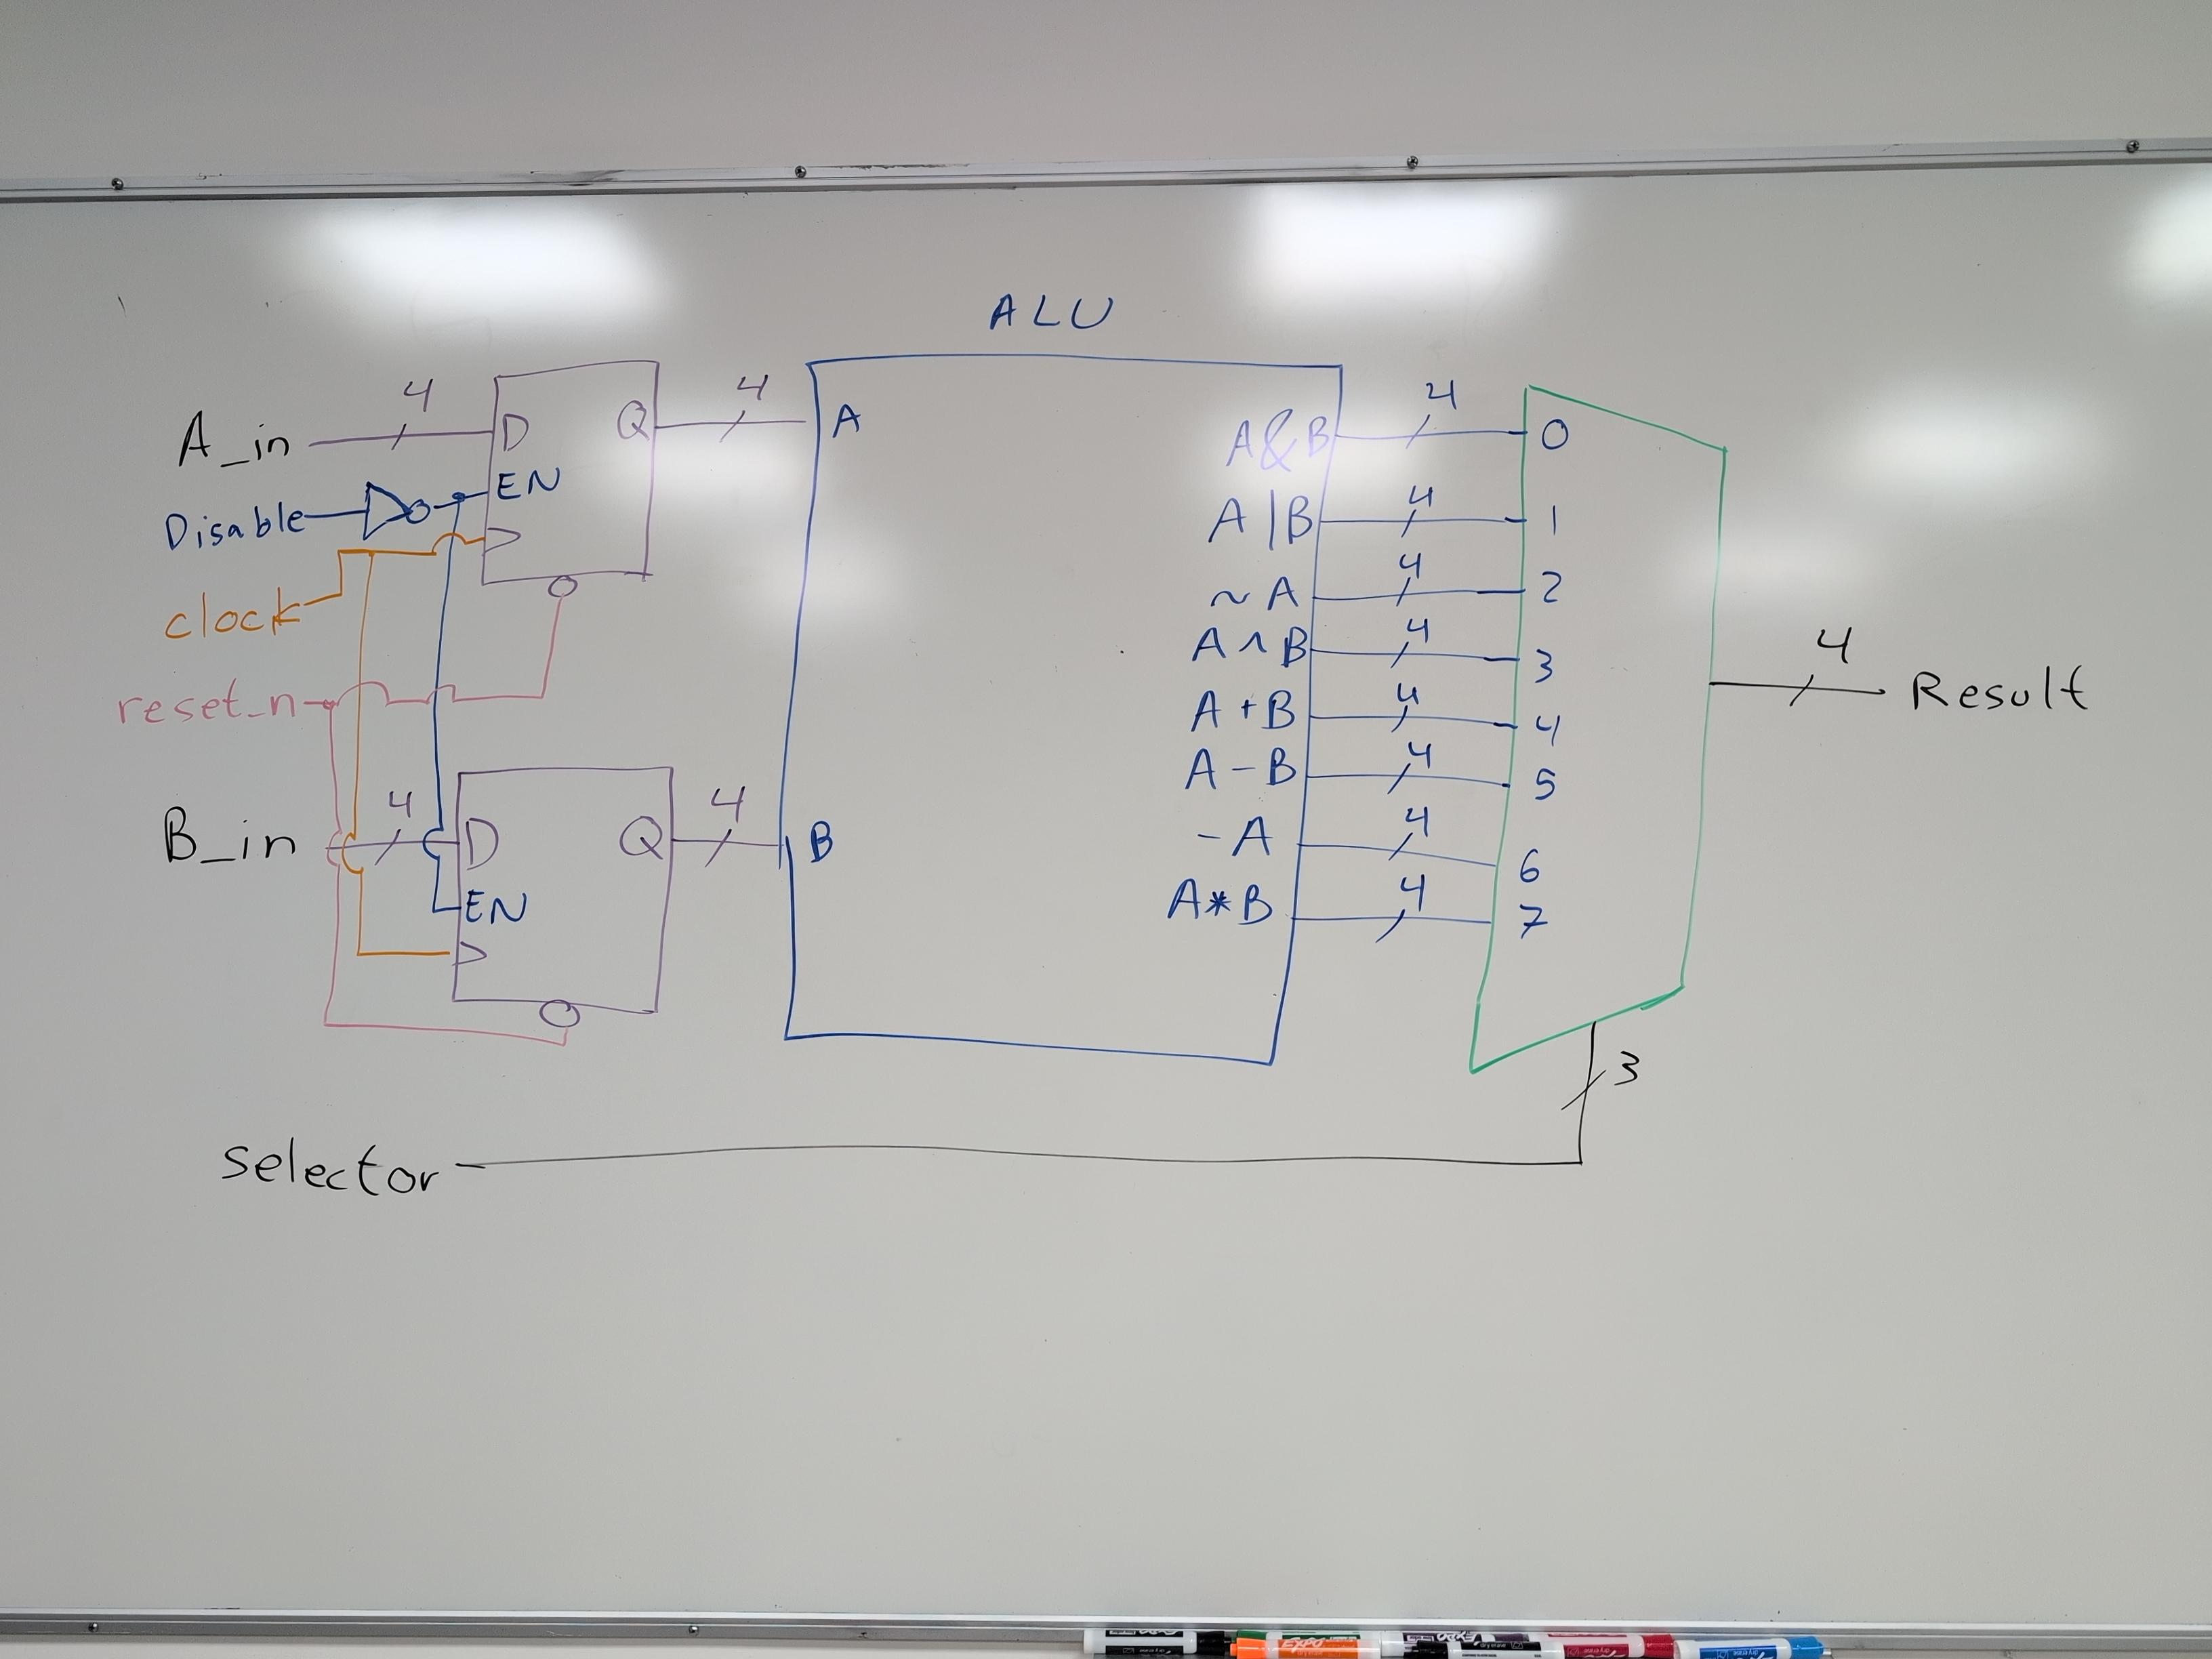 ALU
A_in
4
D
Q
4
A
Disable
EN
clock
reset_n
B_in
4
D
Q
4
B
EN
A&B
4
0
A|B
4
1
~A
4
2
A^B
4
3
A+B
4
4
A-B
4
5
-A
4
6
A*B
4
7
4
Result
3
selector
EXPO